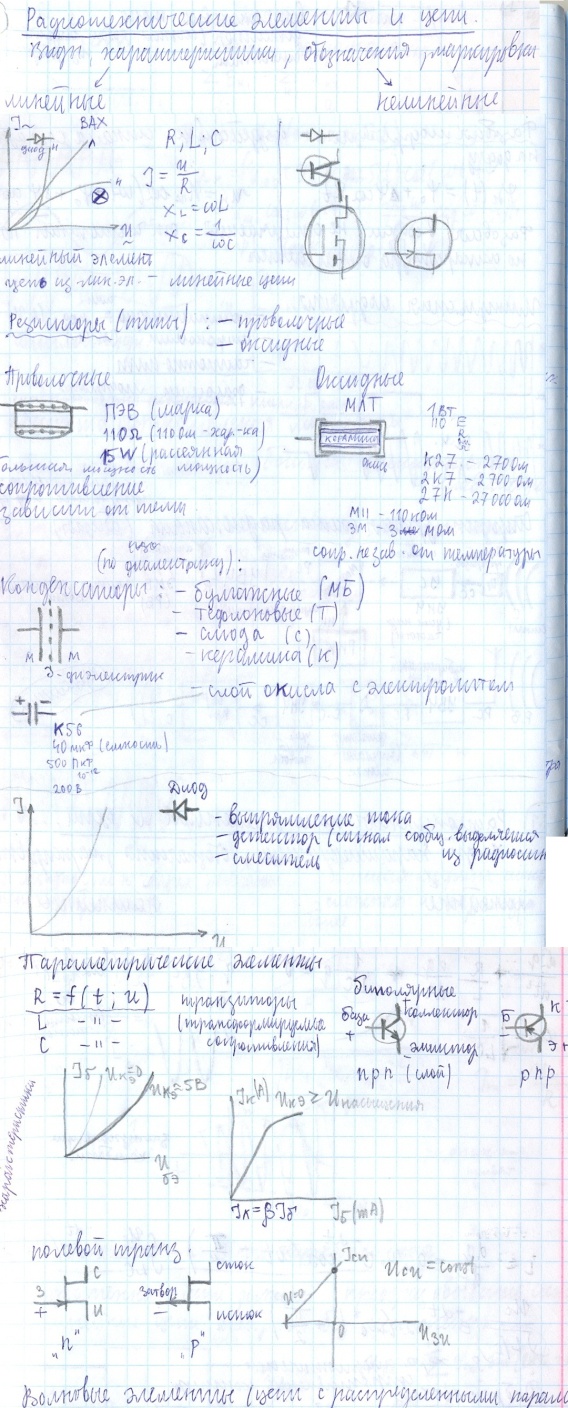 Радиотехнические элементы и цепи.
Виды, характеристики, обозначения, маркировки
линейные
нелинейные
J~
ВАХ
диод
Л
н
н
U~
R; L; C
J = U/R
X_L = ωL
X_C = 1/ωC
линейный элемент
цепь из лин. эл. – линейные цепи
Резисторы (типы) : – проволочные
– оксидные
Проволочные
Оксидные
ПЭВ (марка)
110Ω (110 ом - хар-ка)
15W (рассеянная
большая мощность мощность)
сопротивление
зависит от темп.
МЛТ
керамика
окис
1 ВТ
110
K27 – 270 ом
2K7 – 2700 ом
27K – 27000 ом
М11 – 110 ком
3М – 3 мом
сопр. незав. от температуры
(по диэлектрику):
Конденсаторы : – бумажные (МБ)
– тефлоновые (Т)
– слюда (С)
– керамика (К)
М
М
Э - диэлектрик
– слой окисла с электролитом
+ –
K56
40 мкф (емкость)
500 Пкф
10⁻¹²
200 В
J
U
Диод
– выпрямление тока
– детектор (сигнал сообщ. выделяется
из радиосигн
– смеситель
Параметрические элементы
R = f(t; u)
L –"–
C –"–
транзиторы
(трансформируемые
сопротивления)
биполярные
база
+
коллектор
+
эмиттер
n p n (слой)
Б
–
К
Э
p n p
характеристики
Jб
Uкэ=0
Uкэ=5В
U бэ
Jк(А)
Uкэ ≥ U насыщения
Jк=βJб
Jб(mA)
полевой транз.
З
+
С
И
„n"
затвор
–
сток
исток
„p"
U=0
Jси
0
Uзи
Uси = const
Волновые элементы (цепи с распределенными парам